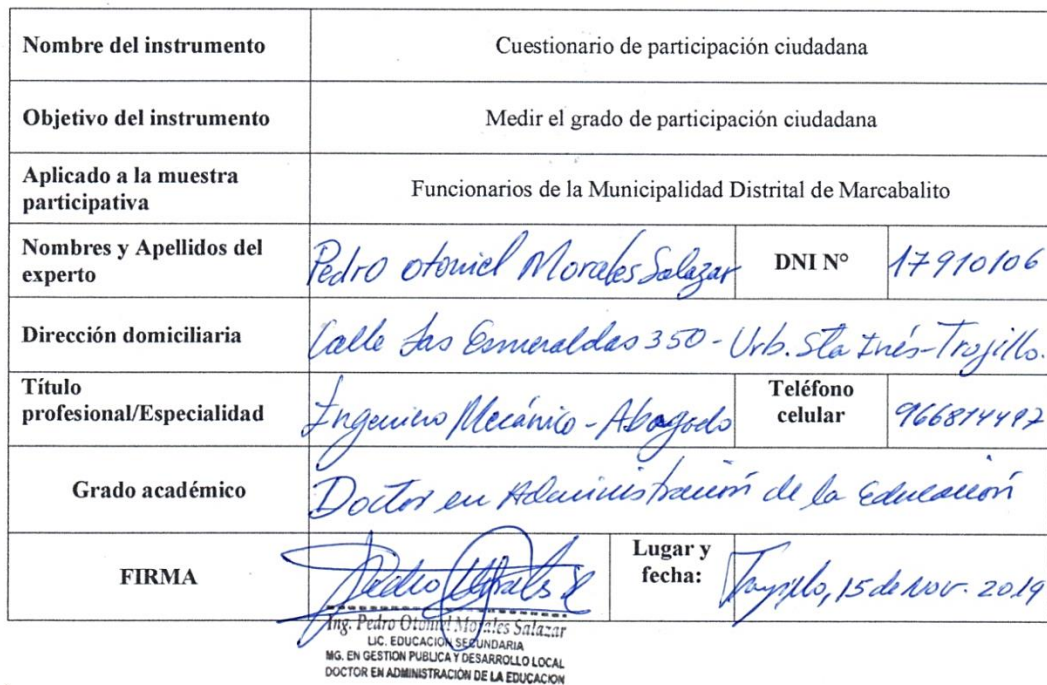 Nombre del instrumento
Cuestionario de participación ciudadana
Objetivo del instrumento
Medir el grado de participación ciudadana
Aplicado a la muestra
participativa
Funcionarios de la Municipalidad Distrital de Marcabalito
Nombres y Apellidos del
experto
Pedro Otoniel Morales Salazar
DNI N°
17910106
Dirección domiciliaria
Calle Las Esmeraldas 350 - Urb. Sta Inés - Trujillo.
Título
profesional/Especialidad
Ingeniero Mecánico - Abogado
Teléfono
celular
9668144
Grado académico
Doctor en Administración de la Educación
FIRMA
Pedro Morales S
Lugar y
fecha:
Trujillo, 15 de Nov. 2019
Ing. Pedro Otoniel Morales Salazar
LIC. EDUCACIÓN SECUNDARIA
MG. EN GESTION PUBLICA Y DESARROLLO LOCAL
DOCTOR EN ADMINISTRACIÓN DE LA EDUCACION